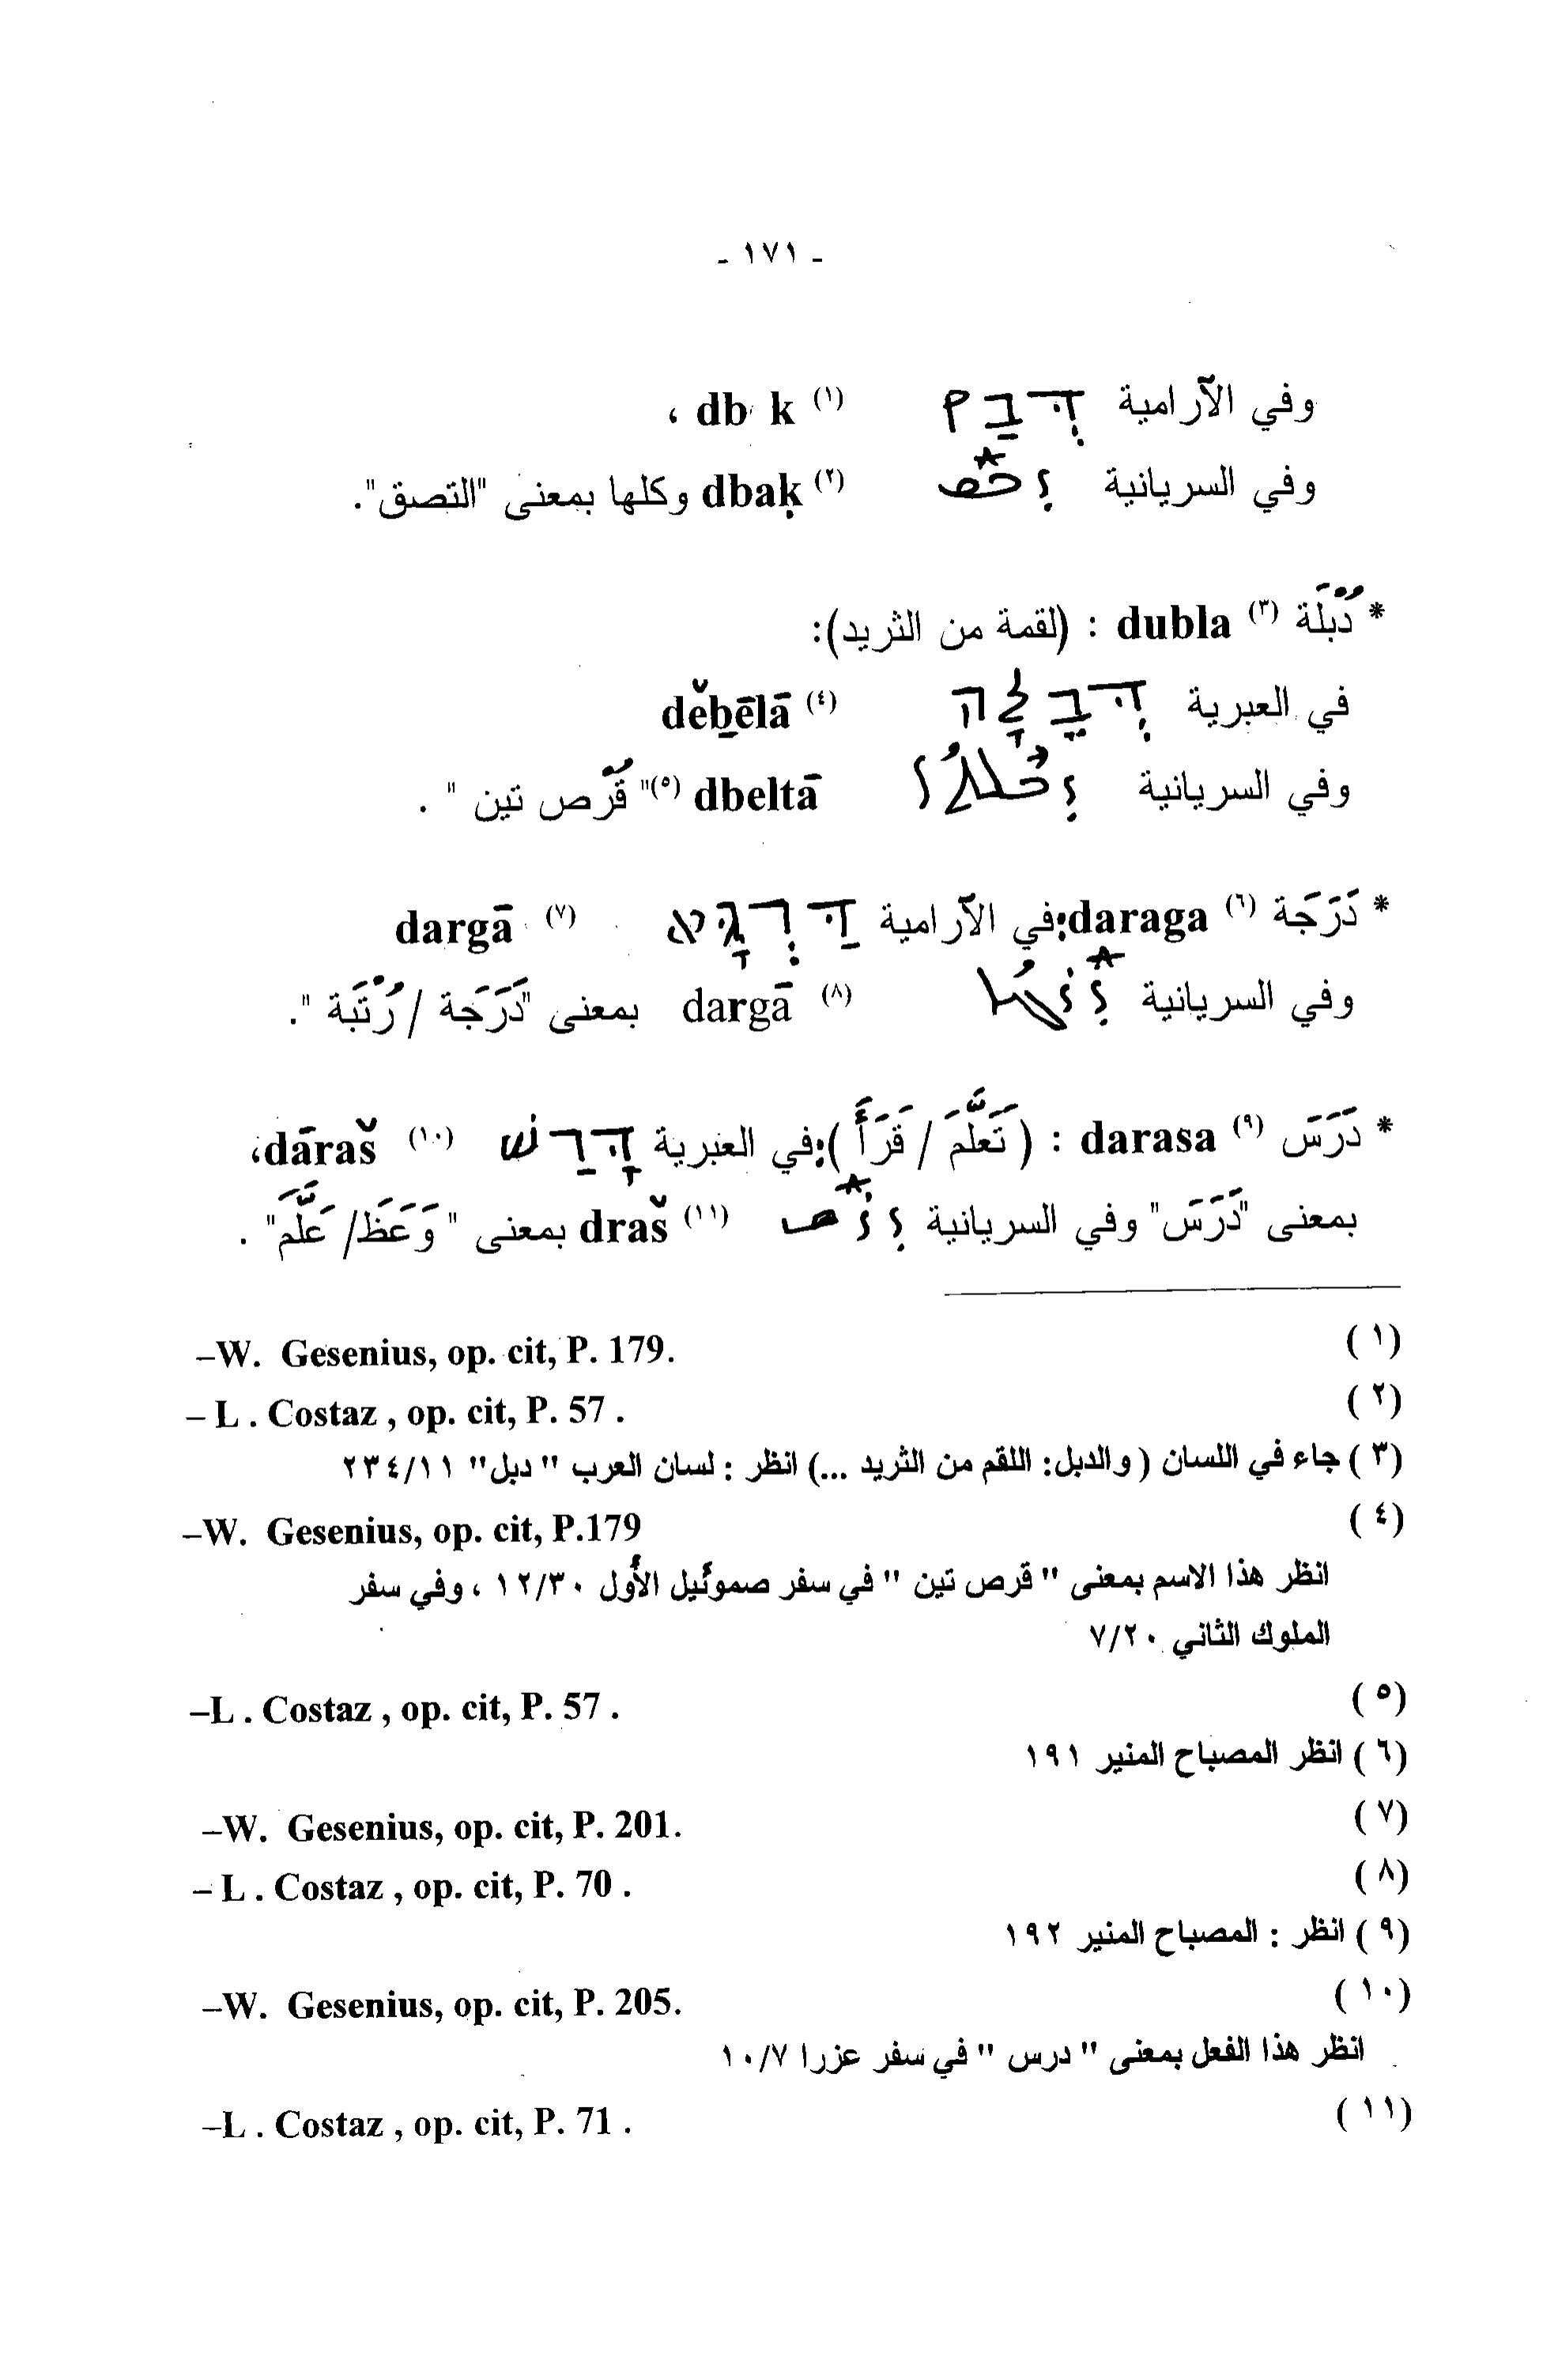 - ١٧١ -
وفي الآرامية דְּבַק db k (١) ،
وفي السريانية ܕܒܩ dbaḳ (٢) وكلها بمعنى "التصق".
* دُبْلَة (٣) dubla : (لقمة من الثريد):
في العبرية דְּבֵלָה dĕḇēlā (٤)
وفي السريانية ܕܒܠܬܐ dbeltā (٥) "قُرْص تين " .
* دَرَجَة (٦) daraga؛ في الآرامية דַּרְגָּא dargā (٧)
وفي السريانية ܕܪܓܐ dargā (٨) بمعنى "دَرَجَة / رُتْبَة ".
* دَرَسَ (٩) darasa : ( تَعَلَّمَ / قَرَأَ )؛ في العبرية דָּרַשׁ dāraš (١٠)،
بمعنى "دَرَسَ" وفي السريانية ܕܪܫ draš (١١) بمعنى " وَعَظَ/ عَلَّمَ" .
(١) –W. Gesenius, op. cit, P. 179.
(٢) – L . Costaz , op. cit, P. 57 .
(٣) جاء في اللسان ( والدبل: اللقم من الثريد ...) انظر : لسان العرب " دبل" ٢٣٤/١١
(٤) –W. Gesenius, op. cit, P.179
انظر هذا الاسم بمعنى " قرص تين " في سفر صموئيل الأول ١٢/٣٠ ، وفي سفر
الملوك الثاني ٧/٢٠
(٥) –L . Costaz , op. cit, P. 57 .
(٦) انظر المصباح المنير ١٩١
(٧) –W. Gesenius, op. cit, P. 201.
(٨) – L . Costaz , op. cit, P. 70 .
(٩) انظر : المصباح المنير ١٩٢
(١٠) –W. Gesenius, op. cit, P. 205.
انظر هذا الفعل بمعنى " درس " في سفر عزرا ١٠/٧
(١١) –L . Costaz , op. cit, P. 71 .